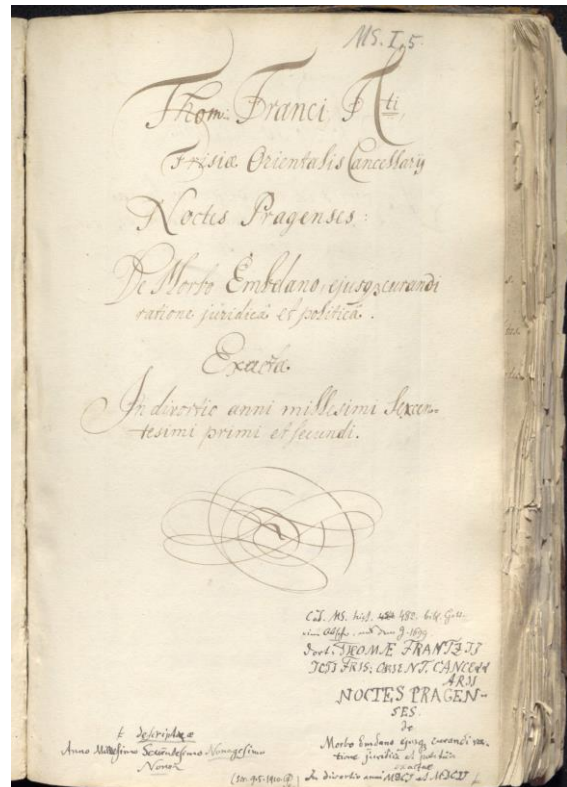 MS. I, 5.
Thom. Franci, Jcti,
Frisiæ Orientalis Cancellarij
Noctes Pragenses:
De Morbo Embdano, ejusq; curandi
ratione juridicâ et politicâ.
Exactæ
In divortio anni millesimi Sexcen-
tesimi primi et secundi.
Cod. MS. hist. 482. bibl.
1699
THOMÆ FRANTZII
ICTI FRIS: ORIENT. CANCELL
ARII
NOCTES PRAGEN-
SES.
de
Morbo Emdano ejusq; curandi ra-
tione juridica et politica
exactae
In divortio anni MDCI et MDCII
descriptae
Anno Millesimo Sexcentesimo Nonagesimo
Nono